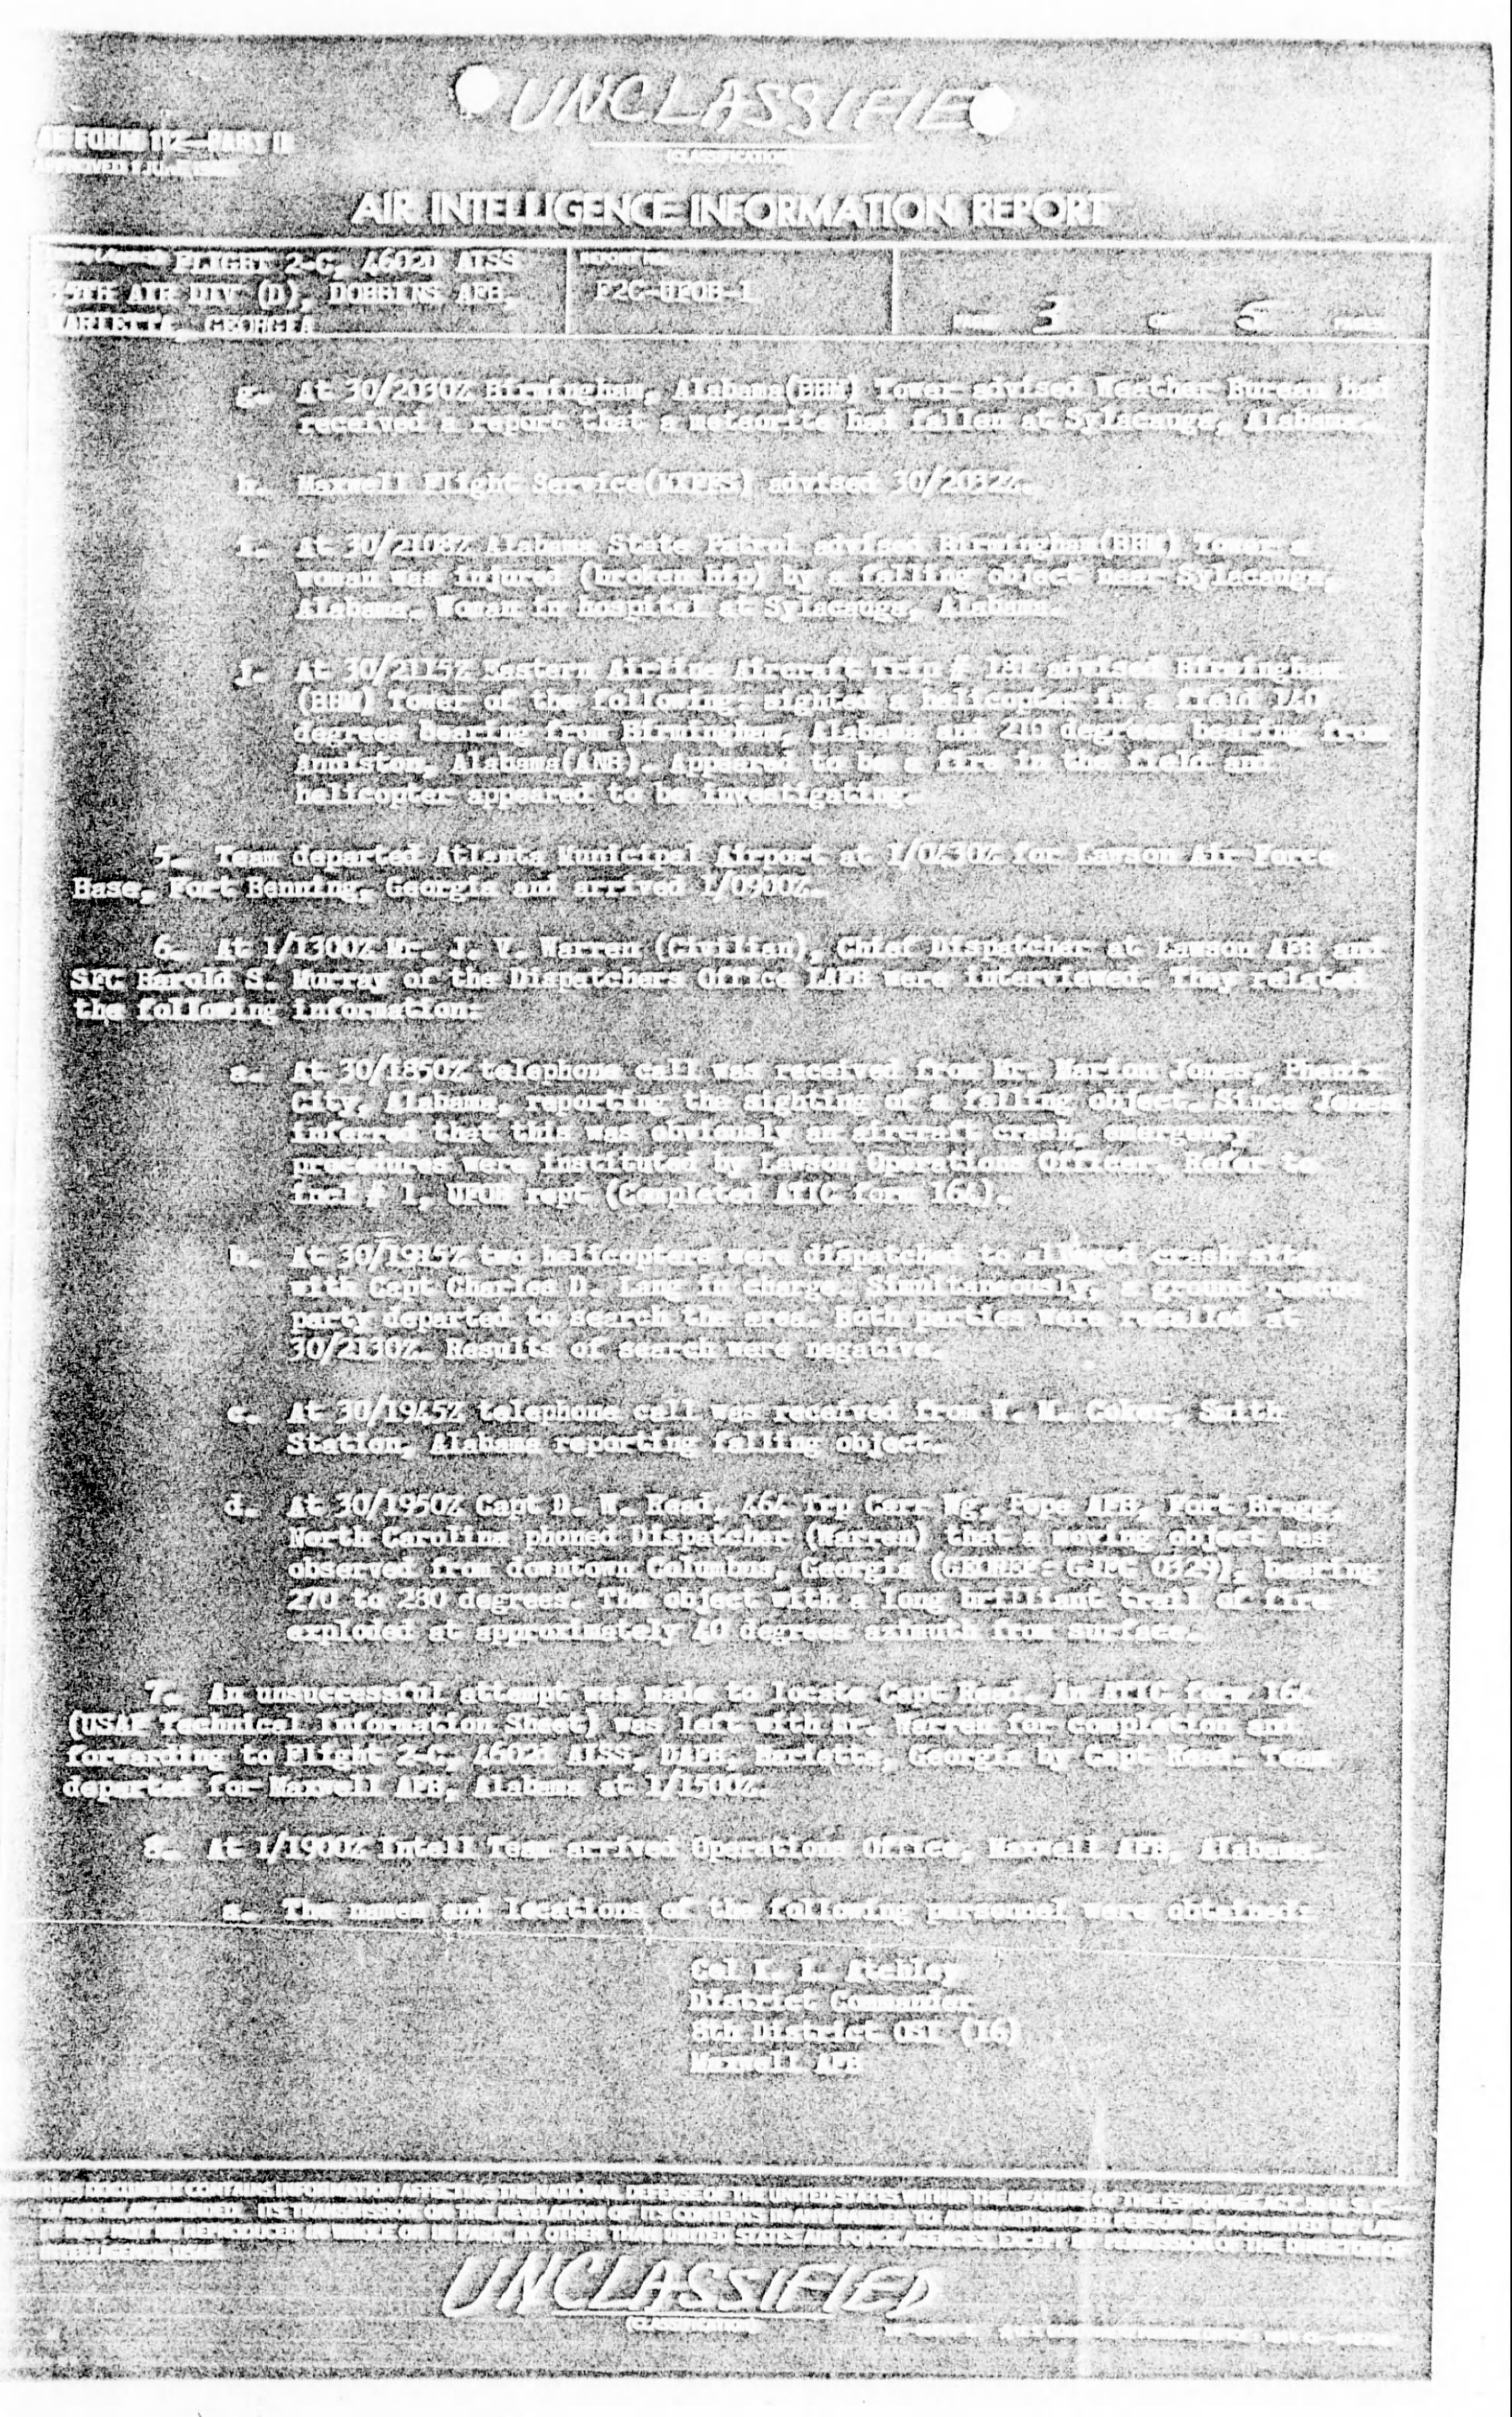 UNCLASSIFIED
(CLASSIFICATION)
AF FORM 112—PART II
APPROVED 1 JUNE
AIR INTELLIGENCE INFORMATION REPORT
FLIGHT 2-C, 4602D AISS
35TH AIR DIV (D), DOBBINS AFB,
MARIETTA, GEORGIA
REPORT NO.
F2C-UFOB-1
PAGE 3 OF 5 PAGES
g. At 30/2030Z Birmingham, Alabama(BHM) Tower advised Weather Bureau had
received a report that a meteorite had fallen at Sylacauga, Alabama.
h. Maxwell Flight Service(MXFFS) advised 30/2032Z.
i. At 30/2108Z Alabama State Patrol advised Birmingham(BHM) Tower a
woman was injured (broken hip) by a falling object near Sylacauga,
Alabama. Woman in hospital at Sylacauga, Alabama.
j. At 30/2115Z Eastern Airlines Aircraft Trip # 181 advised Birmingham
(BHM) Tower of the following- sighted a helicopter in a field 140
degrees bearing from Birmingham, Alabama and 210 degrees bearing from
Anniston, Alabama(ANB). Appeared to be a fire in the field and
helicopter appeared to be investigating.
5. Team departed Atlanta Municipal Airport at 1/0430Z for Lawson Air Force
Base, Fort Benning, Georgia and arrived 1/0900Z.
6. At 1/1300Z Mr. J. V. Warren (Civilian), Chief Dispatcher at Lawson AFB and
SFC Harold S. Murray of the Dispatchers Office LAFB were interviewed. They related
the following information:
a. At 30/1850Z telephone call was received from Mr. Marion Jones, Phenix
City, Alabama, reporting the sighting of a falling object. Since Jones
inferred that this was obviously an aircraft crash, emergency
procedures were instituted by Lawson Operations Officer. Refer to
incl # 1, UFOB rept (Completed ATIC form 164).
b. At two helicopters were dispatched to alleged crash site
with Capt Charles D. Lang in charge. Simultaneously, a ground rescue
party departed to search the area. Both parties were recalled at
30/2130Z. Results of search were negative.
c. At 30/1945Z telephone call was received from W. M. Coker, Smith
Station, Alabama reporting falling object.
d. At 30/1950Z Capt D. W. Read, 464 Trp Carr Wg, Pope AFB, Fort Bragg,
North Carolina phoned Dispatcher (Warren) that a moving object was
observed from downtown Columbus, Georgia (GEOREF- 0329), bearing
270 to 280 degrees. The object with a long brilliant trail of fire
exploded at approximately 40 degrees azimuth from surface.
7. An unsuccessful attempt was made to locate Capt Read. An ATIC form 164
(USAF Technical Information Sheet) was left with Mr. Warren for completion and
forwarding to Flight 2-C, 4602d AISS, DAFB, Marietta, Georgia by Capt Read. Team
departed for Maxwell AFB, Alabama at 1/1500Z.
8. At 1/1900Z Intell Team arrived Operations Office, Maxwell AFB, Alabama.
a. The names and locations of the following personnel were obtained:
Col Atchley
District Commander
8th District OSI (IG)
Maxwell AFB
THIS DOCUMENT CONTAINS INFORMATION AFFECTING THE NATIONAL DEFENSE OF THE UNITED STATES WITHIN THE MEANING OF THE ESPIONAGE ACT,
ITS TRANSMISSION OR THE REVELATION OF ITS CONTENTS IN ANY MANNER TO AN UNAUTHORIZED PERSON IS PROHIBITED BY LAW.
IT MAY NOT BE REPRODUCED IN WHOLE OR IN PART, BY OTHER THAN UNITED STATES AIR FORCE AGENCIES, EXCEPT BY PERMISSION OF THE DIRECTOR OF
INTELLIGENCE,
UNCLASSIFIED
(CLASSIFICATION)